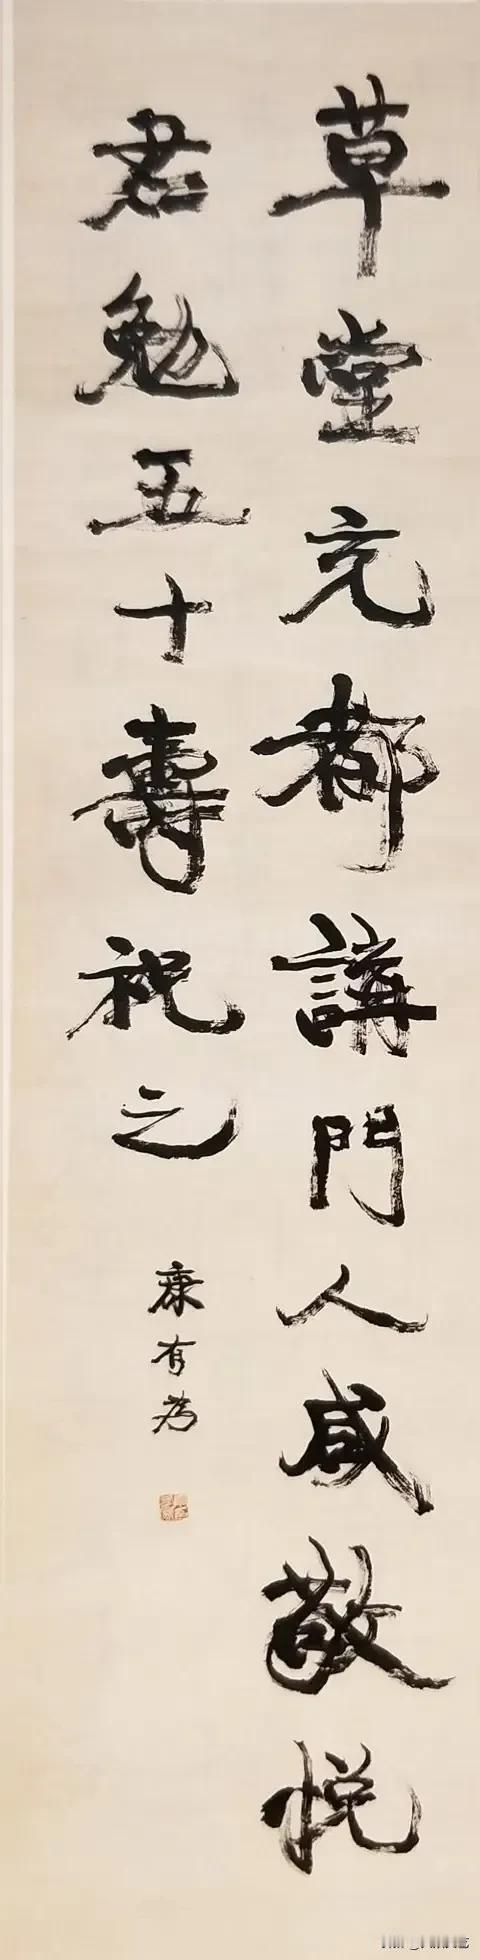 草堂充都講門人咸敬悅
君勉五十壽祝之
康有為